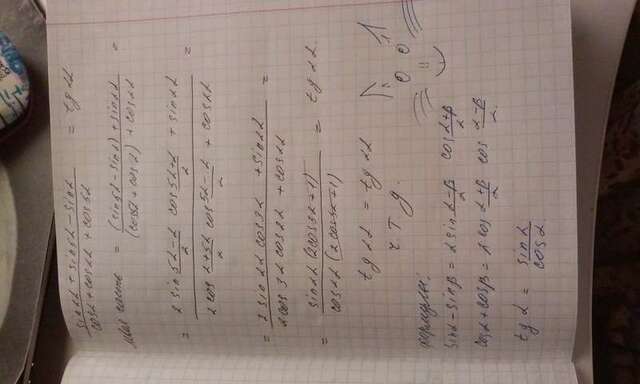 (sin2α + sin5α - sinα) / (cosα + cos2α + cos5α) = tg 2α
Левая часть = ((sin5α - sinα) + sin2α) / ((cos5α + cosα) + cos2α) =
= (2 sin (5α-α)/2 cos (5α+α)/2 + sin2α) / (2 cos (α+5α)/2 cos (5α-α)/2 + cos2α) =
= (2 sin2α cos3α + sin2α) / (2 cos3α cos2α + cos2α) =
= sin2α (2cos3α+1) / cos2α (2cos3α+1) = tg 2α
tg 2α = tg 2α
ч.т.д.
формулы:
sinα - sinβ = 2 sin (α-β)/2 cos (α+β)/2
cosα + cosβ = 2 cos (α+β)/2 cos (α-β)/2
tg α = sinα / cosα